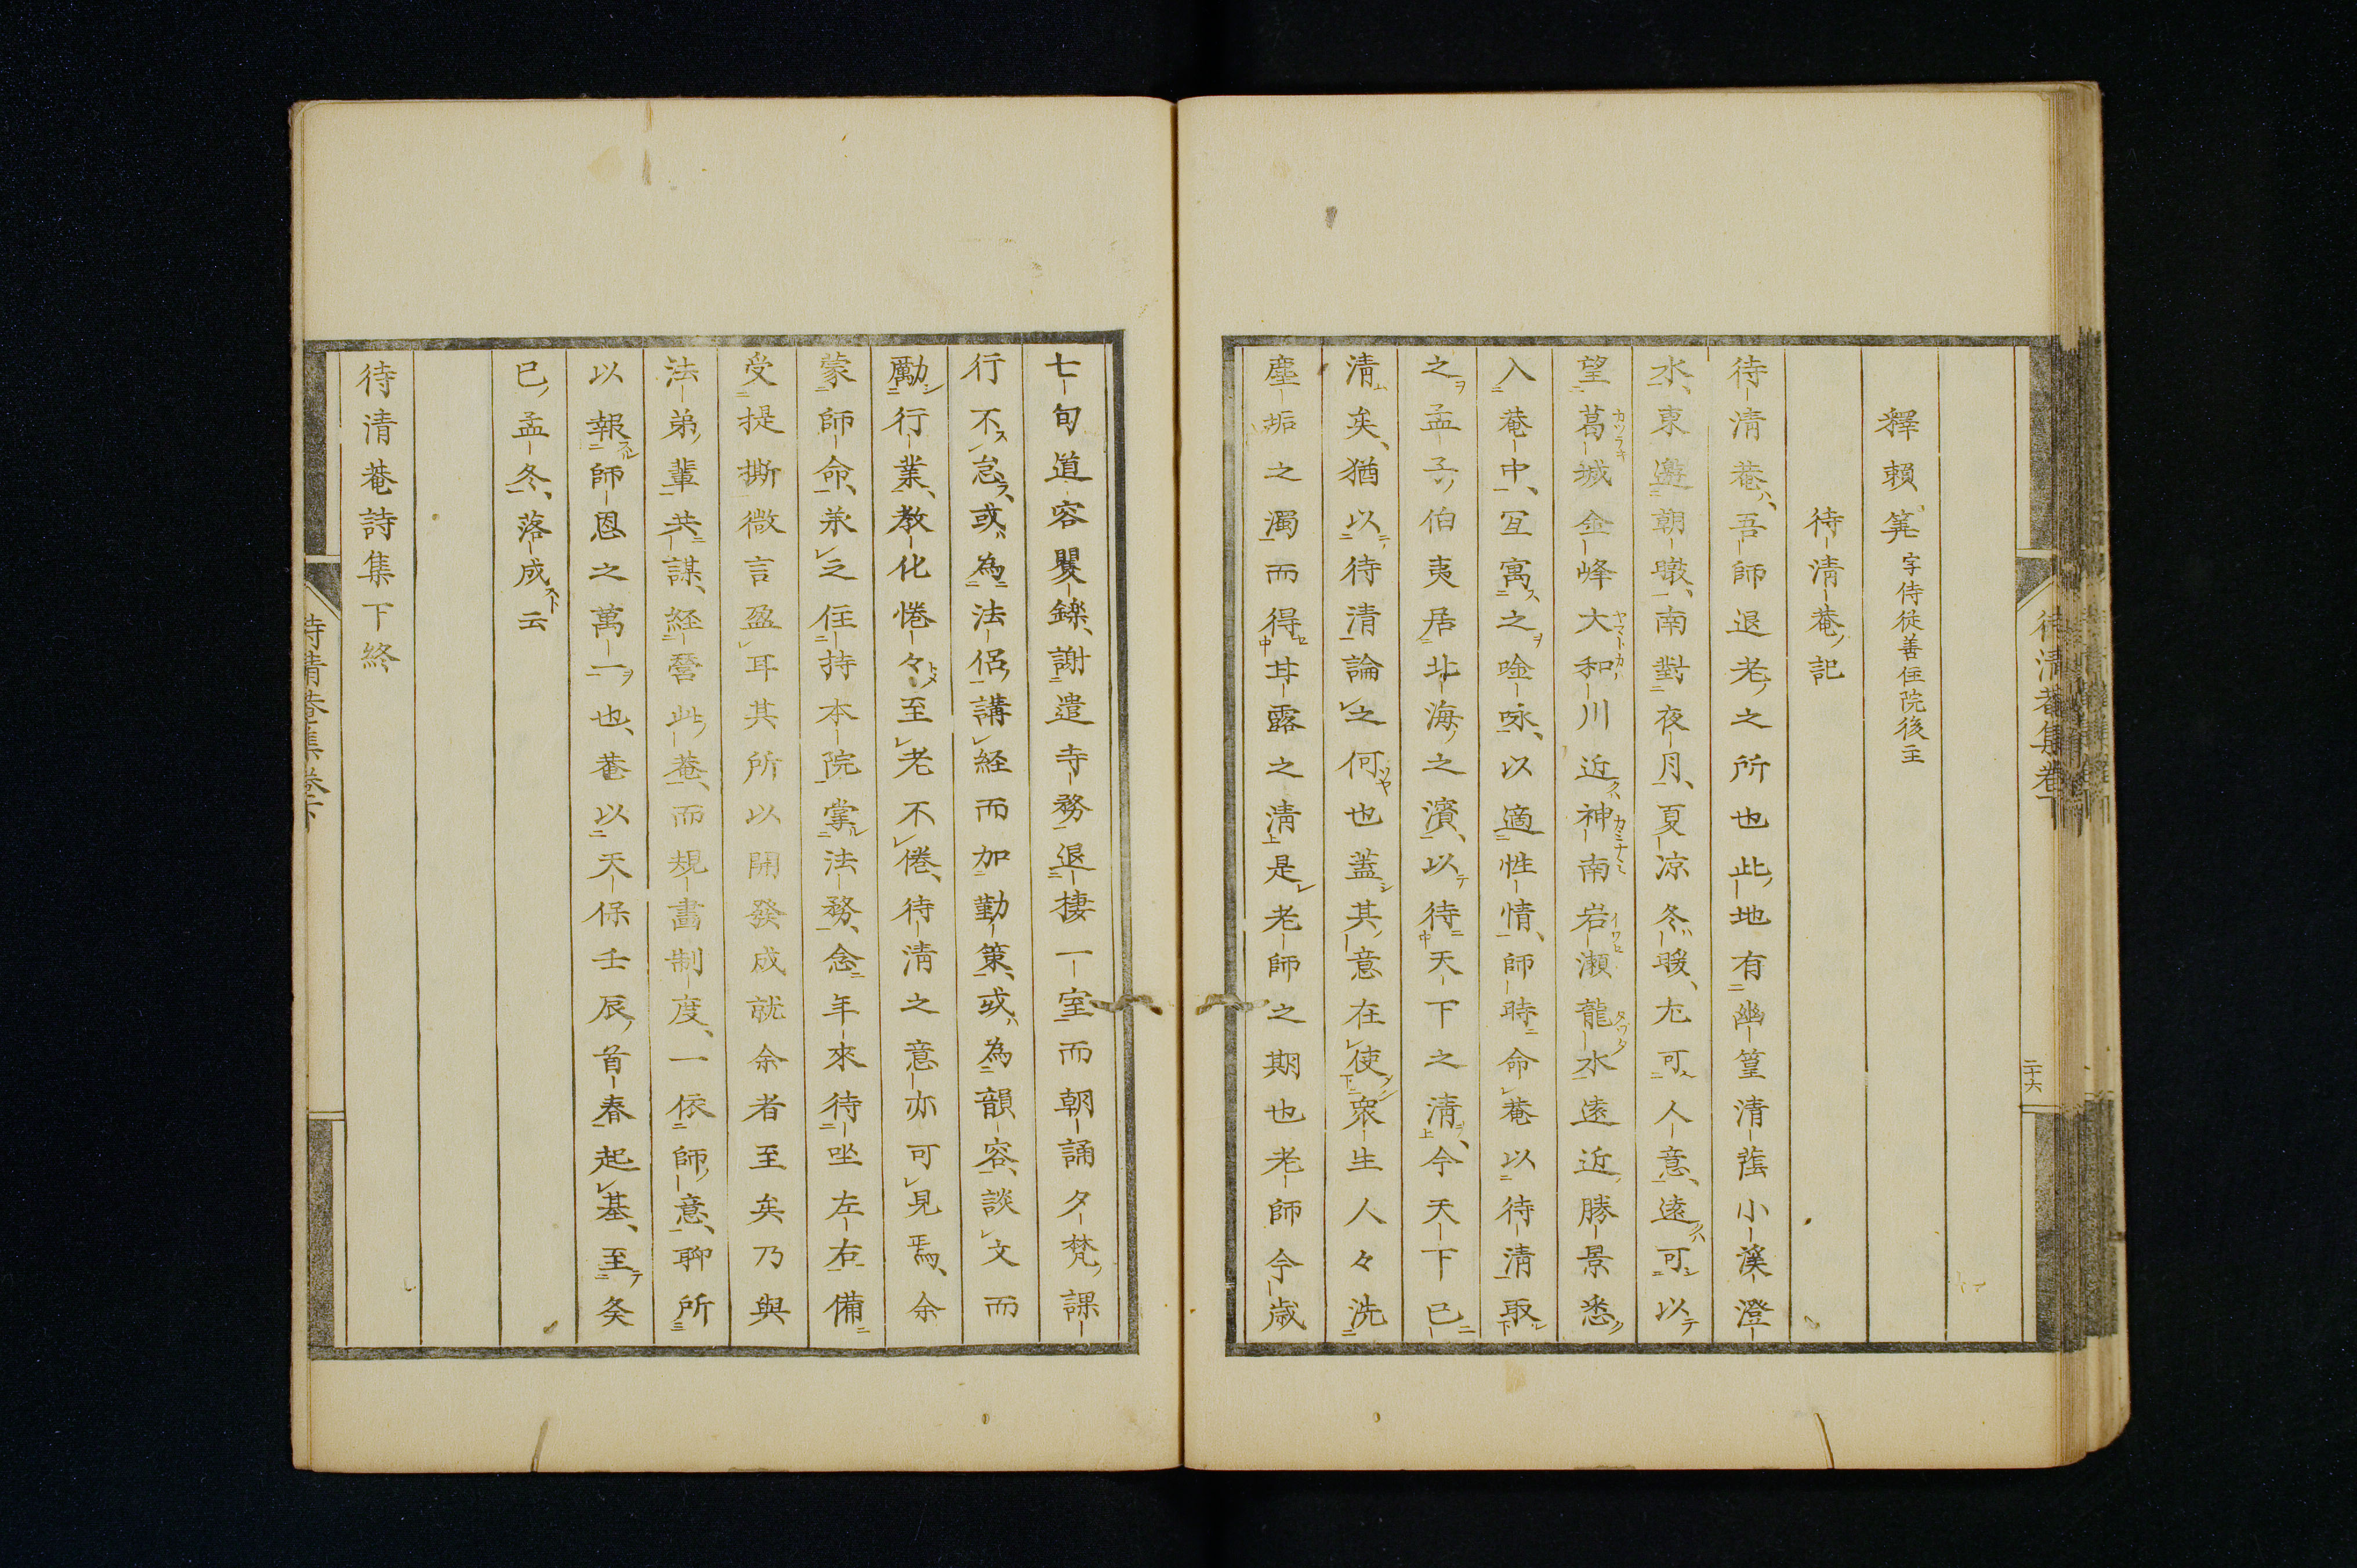 釋賴筭字侍徒善住院後主
待清菴記
待清菴吾師退老之所也此地有幽篁清蔭小溪澄
水東邀朝暾南對夜月夏凉冬暖尤可人意遠可以
望葛城金峰大和川近神南岩瀬龍水遠近勝景悉
入菴中互寓之唫咏以適性情師時命菴以待清取
之孟子伯夷居北海之濱以待天下之清今天下已
清矣猶以待清論之何也蓋其意在使衆生人々洗
塵垢之濁而得甘露之清是老師之期也老師今歳
七旬道容矍鑠謝遣寺務退棲一室而朝誦夕梵課
行不怠或為法侶講経而加勤策或為韻容談文而
勵行業教化惓々至老不倦待清之意亦可見焉余
蒙師命承之住持本院掌法務念年來待坐左右備
受提撕微言盈耳其所以開發成就余者至矣乃與
法弟輩共謀経營此菴而規畫制度一依師意聊所
以報師恩之萬一也菴以天保壬辰首春起基至癸
巳孟冬落成云
待清菴詩集下終
待清菴集巻下
二十六
待清菴集巻下